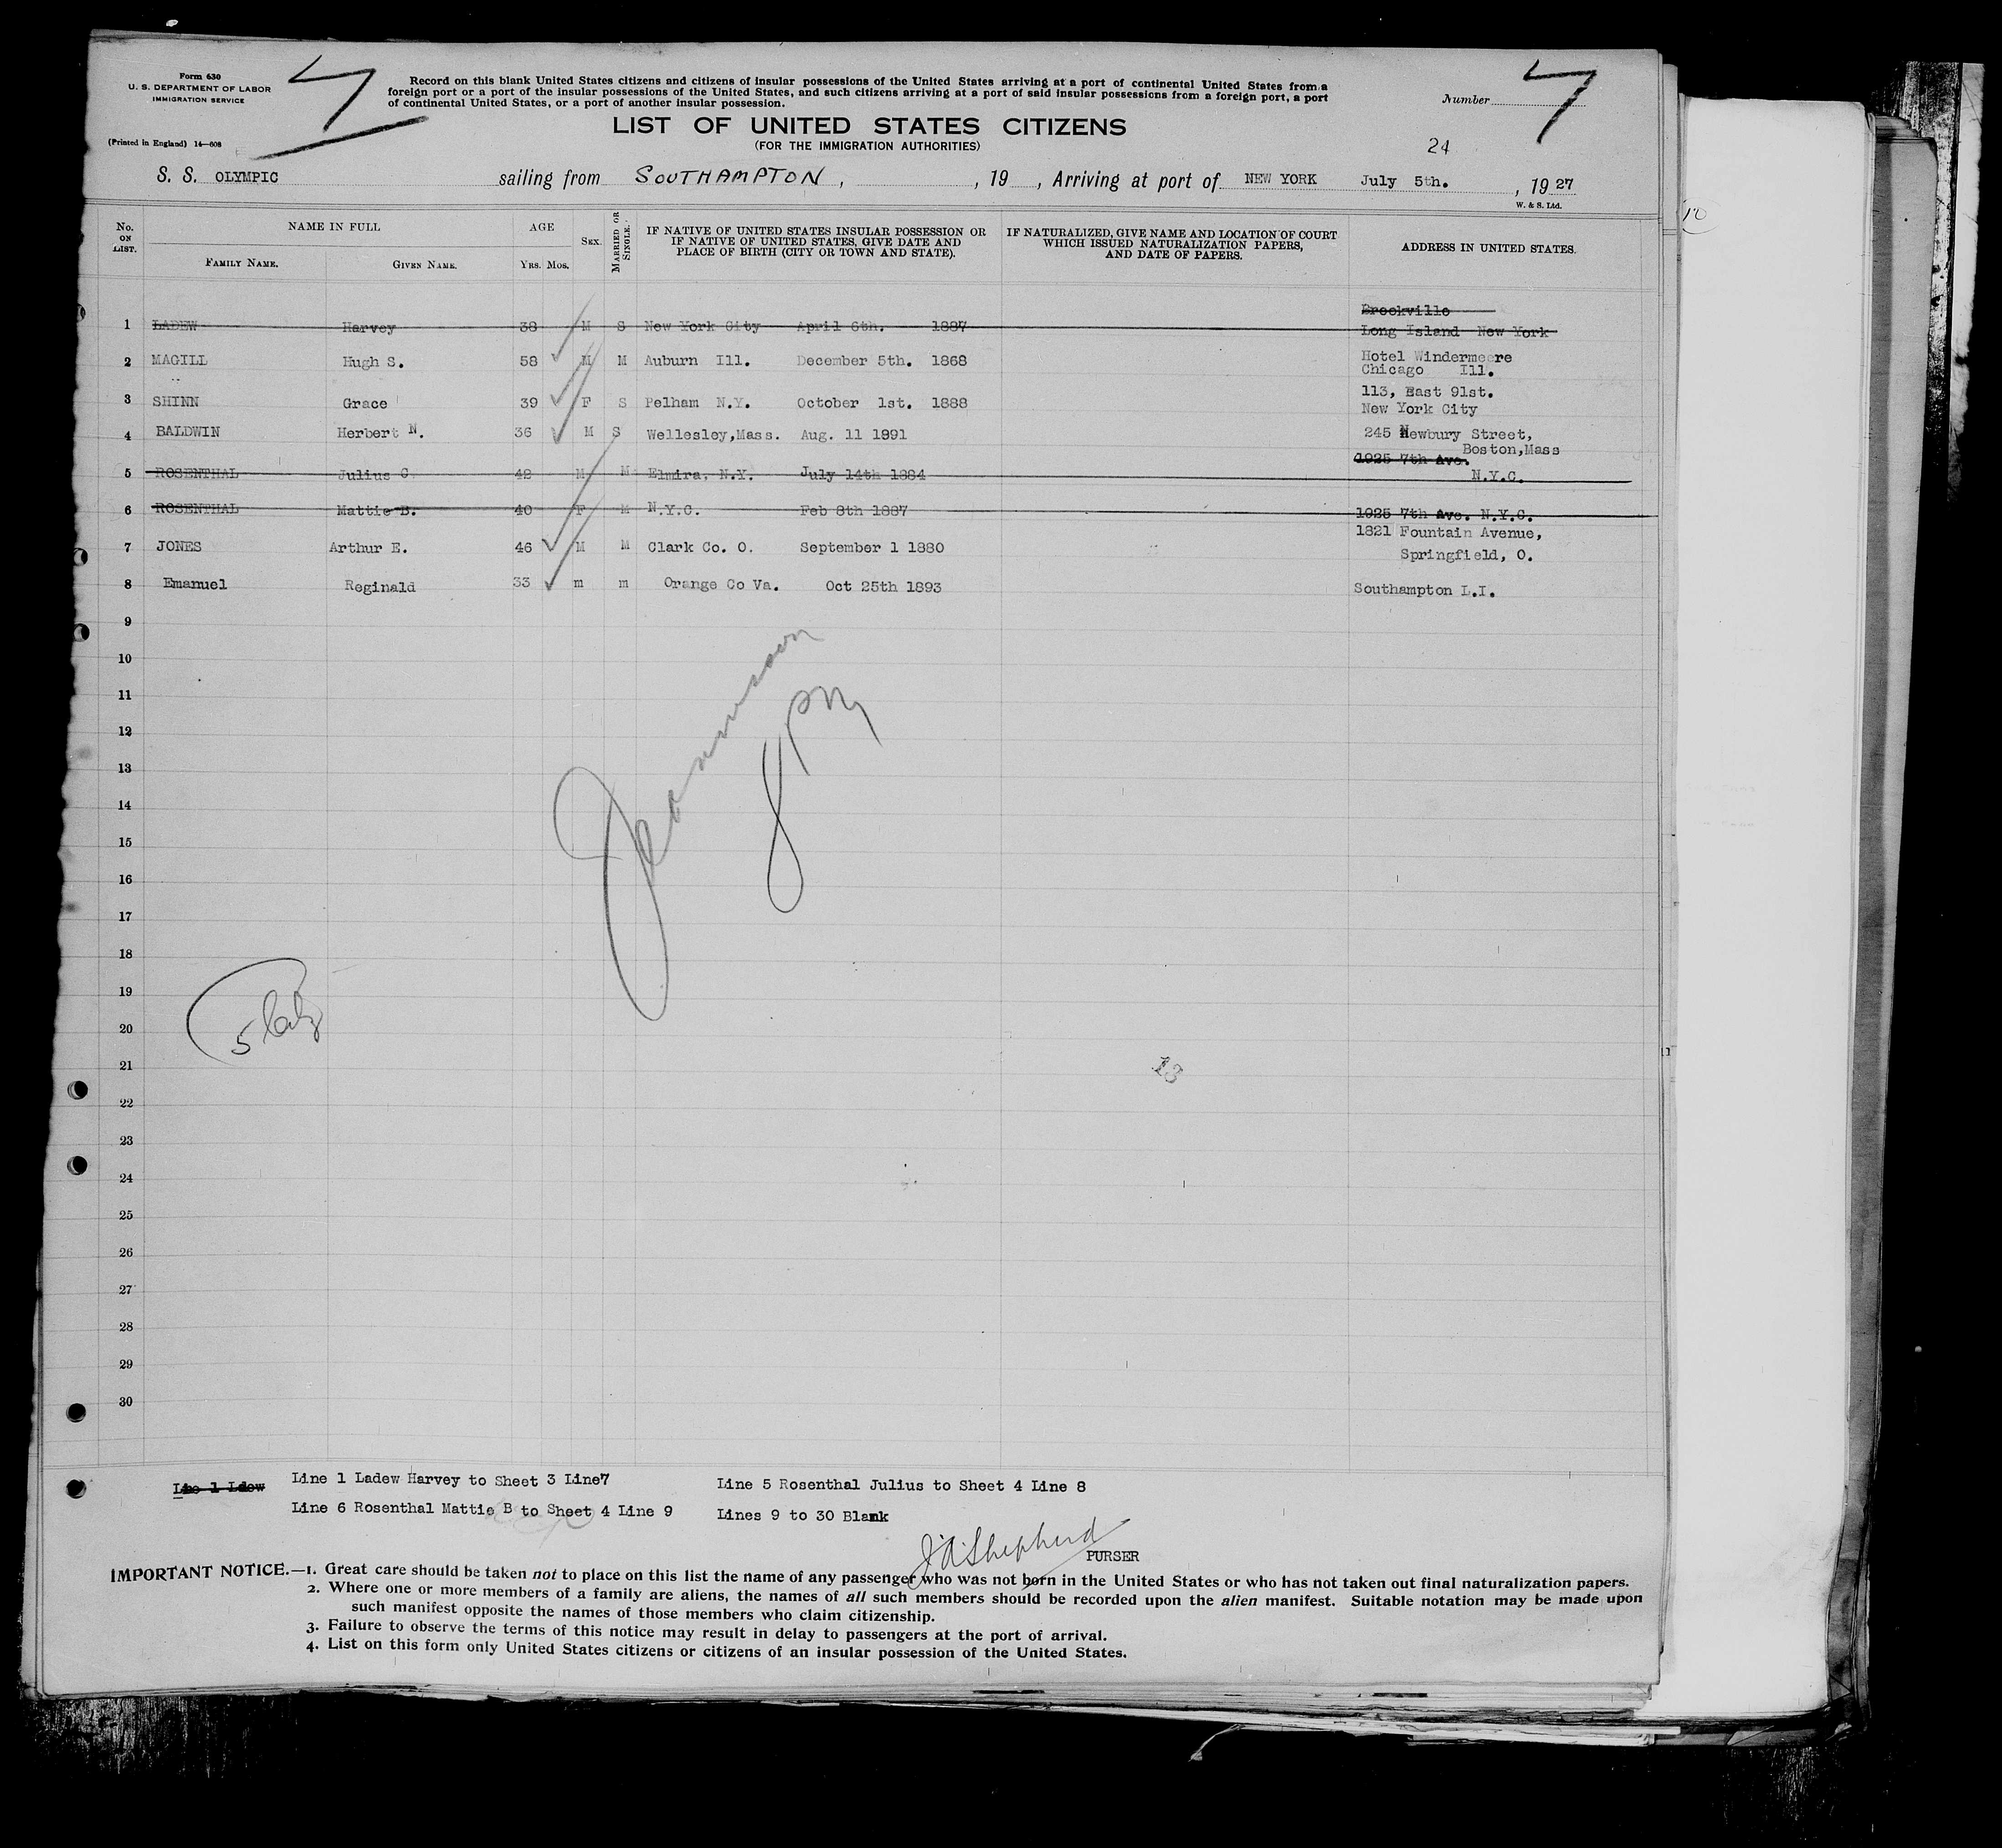 Form 630
U. S. DEPARTMENT OF LABOR
IMMIGRATION SERVICE
(Printed in England) 14—608
7
Record on this blank United States citizens and citizens of insular possessions of the United States arriving at a port of continental United States from a
foreign port or a port of the insular possessions of the United States, and such citizens arriving at a port of said insular possessions from a foreign port, a port
of continental United States, or a port of another insular possession.
Number 7
LIST OF UNITED STATES CITIZENS
(FOR THE IMMIGRATION AUTHORITIES)
24
S. S. OLYMPIC sailing from SOUTHAMPTON, , 19 , Arriving at port of NEW YORK July 5th. , 19 27
W. & S. Ltd.
No. ON LIST. NAME IN FULL AGE SEX. MARRIED OR SINGLE. IF NATIVE OF UNITED STATES INSULAR POSSESSION OR IF NATIVE OF UNITED STATES, GIVE DATE AND PLACE OF BIRTH (CITY OR TOWN AND STATE). IF NATURALIZED, GIVE NAME AND LOCATION OF COURT WHICH ISSUED NATURALIZATION PAPERS, AND DATE OF PAPERS. ADDRESS IN UNITED STATES.
FAMILY NAME. GIVEN NAME. YRS. MOS.
Brockville
1 LADEW Harvey 38 M S New York City April 6th. 1887 Long Island New York
2 MAGILL Hugh S. 58 M M Auburn Ill. December 5th. 1868 Hotel Windermeere
Chicago Ill.
3 SHINN Grace 39 F S Pelham N.Y. October 1st. 1888 113, East 91st.
New York City
4 BALDWIN Herbert N. 36 M S Wellesley,Mass. Aug. 11 1891 245 Newbury Street,
Boston,Mass
5 ROSENTHAL Julius C 42 M M Elmira, N.Y. July 14th 1884 1925 7th Ave.
N.Y.C.
6 ROSENTHAL Mattie B. 40 F M N.Y.C. Feb 8th 1887 1925 7th Ave. N.Y.C.
7 JONES Arthur E. 46 M M Clark Co. O. September 1 1880 1821 Fountain Avenue,
Springfield, O.
8 Emanuel Reginald 33 m m Orange Co Va. Oct 25th 1893 Southampton L.I.
9
10
11
12
13
14
15
16
17
18
19
20
21
22
23
24
25
26
27
28
29
30
8 PM
5
13
Line 1 Ladew Harvey to Sheet 3 Line7 Line 5 Rosenthal Julius to Sheet 4 Line 8
Line 6 Rosenthal Mattie B to Sheet 4 Line 9 Lines 9 to 30 Blank
J A Shepherd
PURSER
IMPORTANT NOTICE.—1. Great care should be taken not to place on this list the name of any passenger who was not born in the United States or who has not taken out final naturalization papers.
2. Where one or more members of a family are aliens, the names of all such members should be recorded upon the alien manifest. Suitable notation may be made upon
such manifest opposite the names of those members who claim citizenship.
3. Failure to observe the terms of this notice may result in delay to passengers at the port of arrival.
4. List on this form only United States citizens or citizens of an insular possession of the United States.